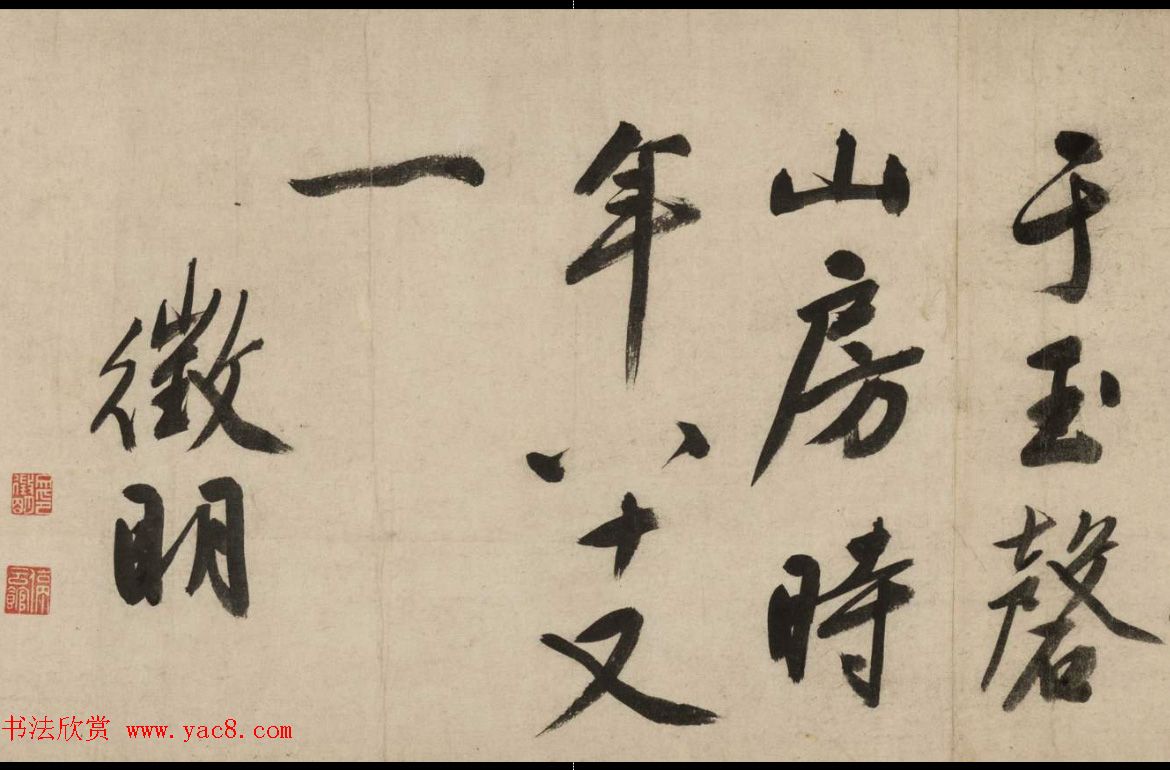 于玉磬
山房時
年八十又
一
徵明
徵明
停雲
书法欣赏 www.yac8.com